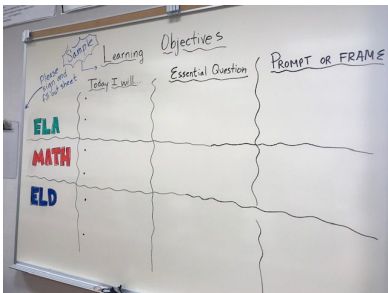 Sample
Learning Objectives
Please
sign and
fill out sheet
Today I will
Essential Question
PROMPT OR FRAME
ELA
MATH
ELD